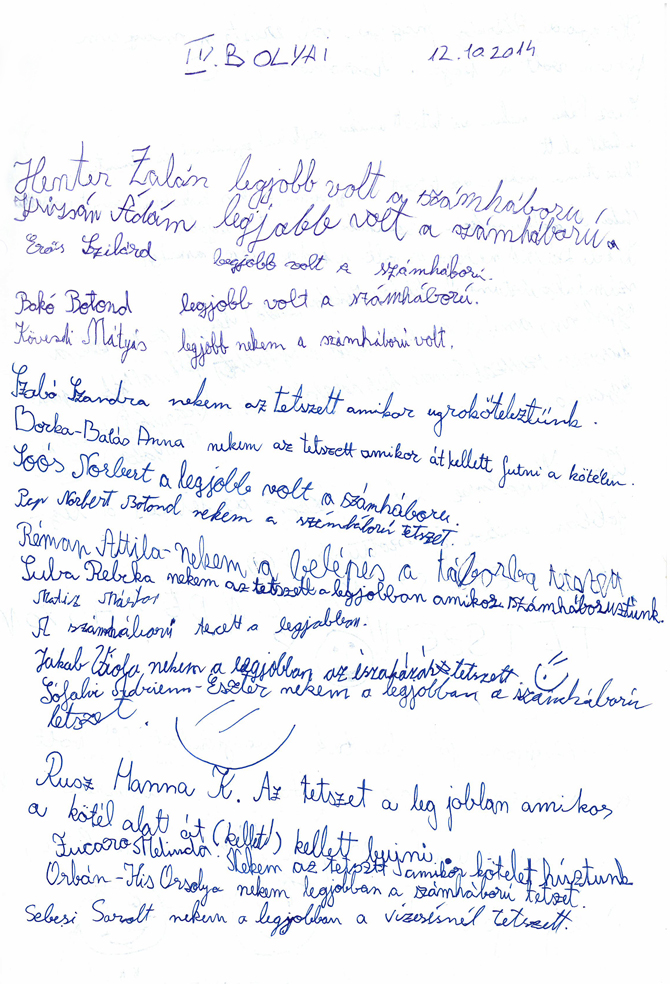 IV. BOLYAI 12.10.2014
Henter Zalán legjobb volt a számháború
Krizsán Ádám legjobb volt a számháború.
Erős Szilárd legjobb volt a számháború.
Bakó Botond legjobb volt a számháború.
Kövesdi Mátyás legjobb nekem a számháború volt.
Szabó Szandra nekem az tetszett amikor ugrokötelesztünk.
Borka-Balás Anna nekem az tetszett amikor át kellett futni a kötélen.
Soós Norbert a legjobb volt a számháboru.
Pap Norbert Botond nekem a számháború tetszet.
Réman Attila-nekem a belépés a táborba
Suba Rebeka nekem az tetszett a legjobban amikor számháborustunk.
A számháború a legjobban.
Jakab Viola nekem a legjobban az tetszett.
Sófalvi Adrienn-Eszter nekem a legjobban a számháború
tetszet.
Rusz Hanna K. Az tetszet a leg jobban amikor
a kötél alat át (kellet) kellett
Melinda. Nekem az tetszett amikor kötelet húztunk
Orbán-Kis Orsolya nekem legjobban a számháború tetszet.
Sebesi Sarolt nekem a legjobban a vízesésnél tetszett.